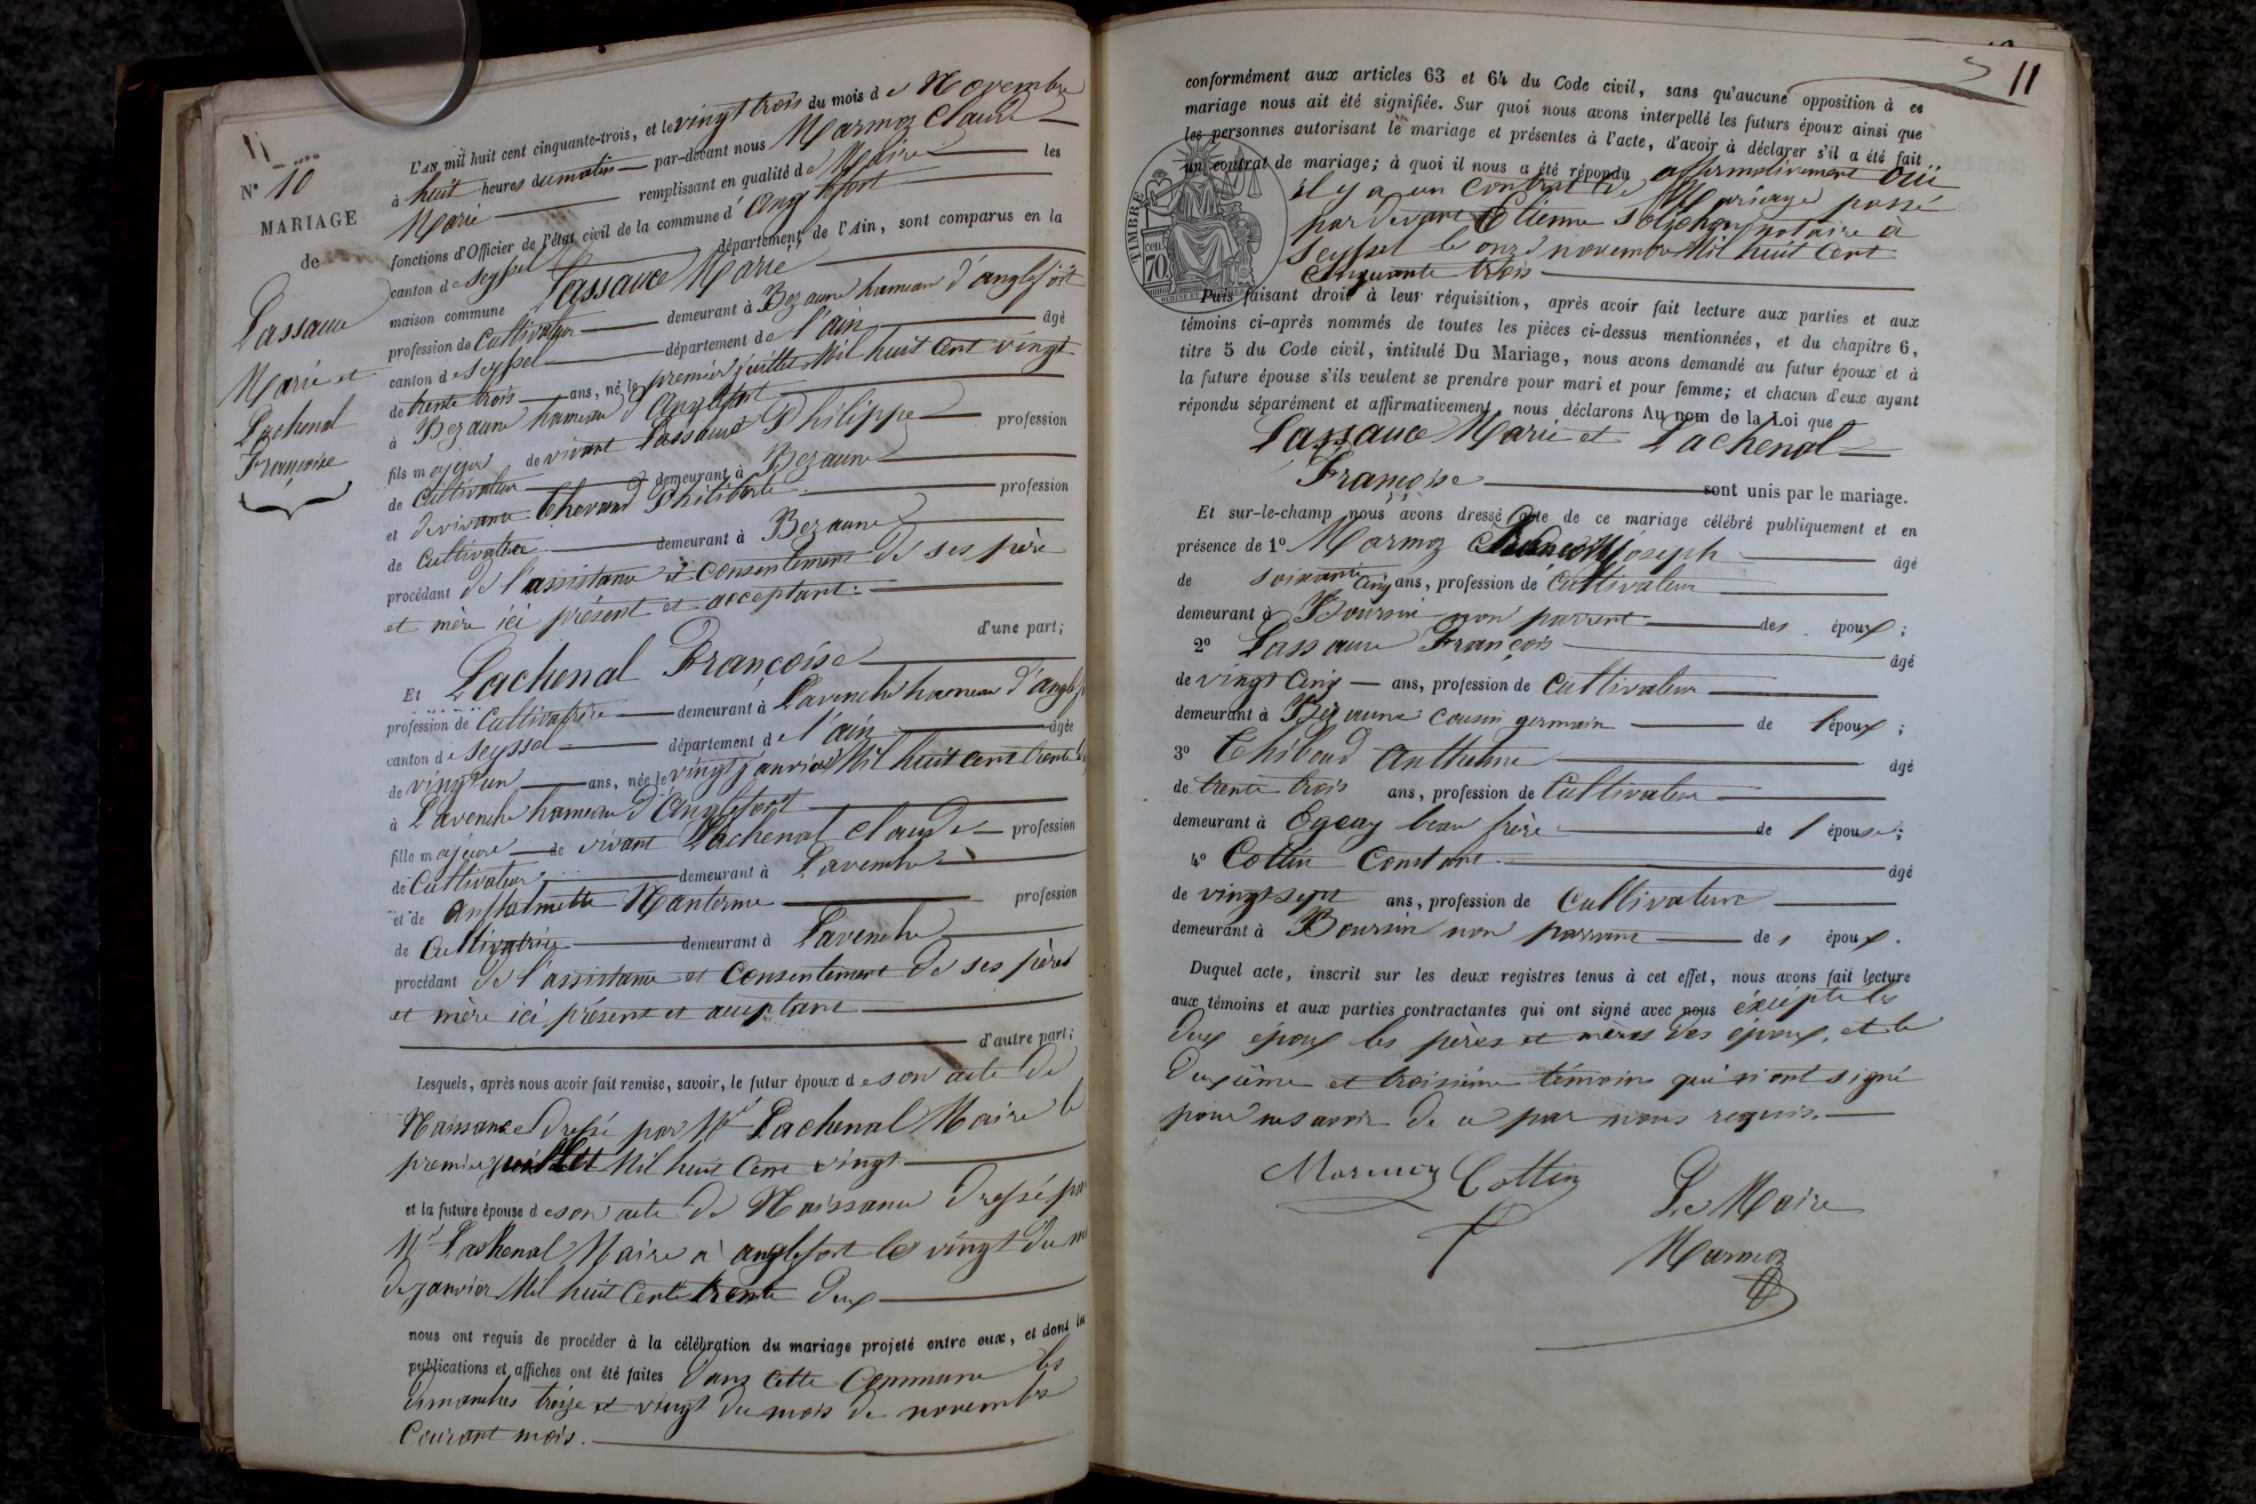 11
N° 10
MARIAGE
de
Lassauce
Marie et
Lachenal
Françoise
L'AN mil huit cent cinquante-trois, et le vingt trois du mois de Novembre
à huit heures du matin par-devant nous Marmoz Claude
Marie remplissant en qualité de Maire les
fonctions d'Officier de l'état civil de la commune d'Anglefort
canton de Seyssel département de l'Ain, sont comparus en la
maison commune Lassauce Marie
profession de Cultivateur demeurant à Bezaune hameau d'anglefort
canton de Seyssel département de l'ain âgé
de trente trois ans, né le premier juillet Mil huit cent vingt
à Bezaune hameau d'Anglefort
fils majeur de vivant Lassauce Philippe profession
de Cultivateur demeurant à Bezaune
et de vivante Philiberte profession
de Cultivatrice demeurant à Bezaune
procédant de l'assistance et consentement de ses père
et mère ici présent et acceptant.
d'une part;
Et Lachenal Françoise
profession de Cultivatrice demeurant à Lavenche hameau d'anglef
canton de Seyssel département de l'ain âgée
de vingt un ans, née le vingt janvier Mil huit cent trente
à Lavenche hameau d'Anglefort
fille majeure de vivant Lachenal Claude profession
de Cultivateur demeurant à Lavenche
et de Anthelmette Nanterme profession
de Cultivatrice demeurant à Lavenche
procédant de l'assistance et consentement de ses pères
et mère ici présent et acceptant
d'autre part;
Lesquels, après nous avoir fait remise, savoir, le futur époux de son acte de
Naissance dressé par Mr Lachenal Maire le
premier juillet Mil huit Cent vingt
et la future épouse de son acte de Naissance dressé par
Mr Lachenal Maire à anglefort le vingt du m
de janvier Mil huit Cent trente deux
nous ont requis de procéder à la célébration du mariage projeté entre eux, et dont les
publications et affiches ont été faites dans cette Commune les
dimanches treize et vingt du mois de novembre
Courant mois.
11
conformément aux articles 63 et 64 du Code civil, sans qu'aucune opposition à ce
mariage nous ait été signifiée. Sur quoi nous avons interpellé les futurs époux ainsi que
les personnes autorisant le mariage et présentes à l'acte, d'avoir à déclarer s'il a été fait
un contrat de mariage; à quoi il nous a été répondu affirmativement oui
il y a un Contrat de Mariage passé
par devant Etienne notaire à
Seyssel le onze novembre Mil huit Cent
Cinquante trois
TIMBRE
70
cen
Puis faisant droit à leur réquisition, après avoir fait lecture aux parties et aux
témoins ci-après nommés de toutes les pièces ci-dessus mentionnées, et du chapitre 6,
titre 5 du Code civil, intitulé Du Mariage, nous avons demandé au futur époux et à
la future épouse s'ils veulent se prendre pour mari et pour femme; et chacun d'eux ayant
répondu séparément et affirmativement, nous déclarons Au nom de la Loi que
Lassauce Marie et Lachenal
Françoise sont unis par le mariage.
Et sur-le-champ nous avons dressé acte de ce mariage célébré publiquement et en
présence de 1° Marmoz joseph âgé
de soixante cinq ans, profession de Cultivateur
demeurant à Boursin non parrent des époux;
2° Lassauce François âgé
de vingt Cinq ans, profession de Cultivateur
demeurant à Bezaune cousin germain de l'époux;
3° Thiboud âgé
de trente trois ans, profession de Cultivateur
demeurant à beau frère de l'épouse;
4° Cottin Constant âgé
de vingt sept ans, profession de Cultivateur
demeurant à Boursin non parrent des époux.
Duquel acte, inscrit sur les deux registres tenus à cet effet, nous avons fait lecture
aux témoins et aux parties contractantes qui ont signé avec nous éxcépte les
deux époux les pères et mères des époux, et le
deuxième et troisième témoins qui n'ont signé
pour ne savoir de ce par nous requis.
Marmoz Cottin
Le Maire
Marmoz